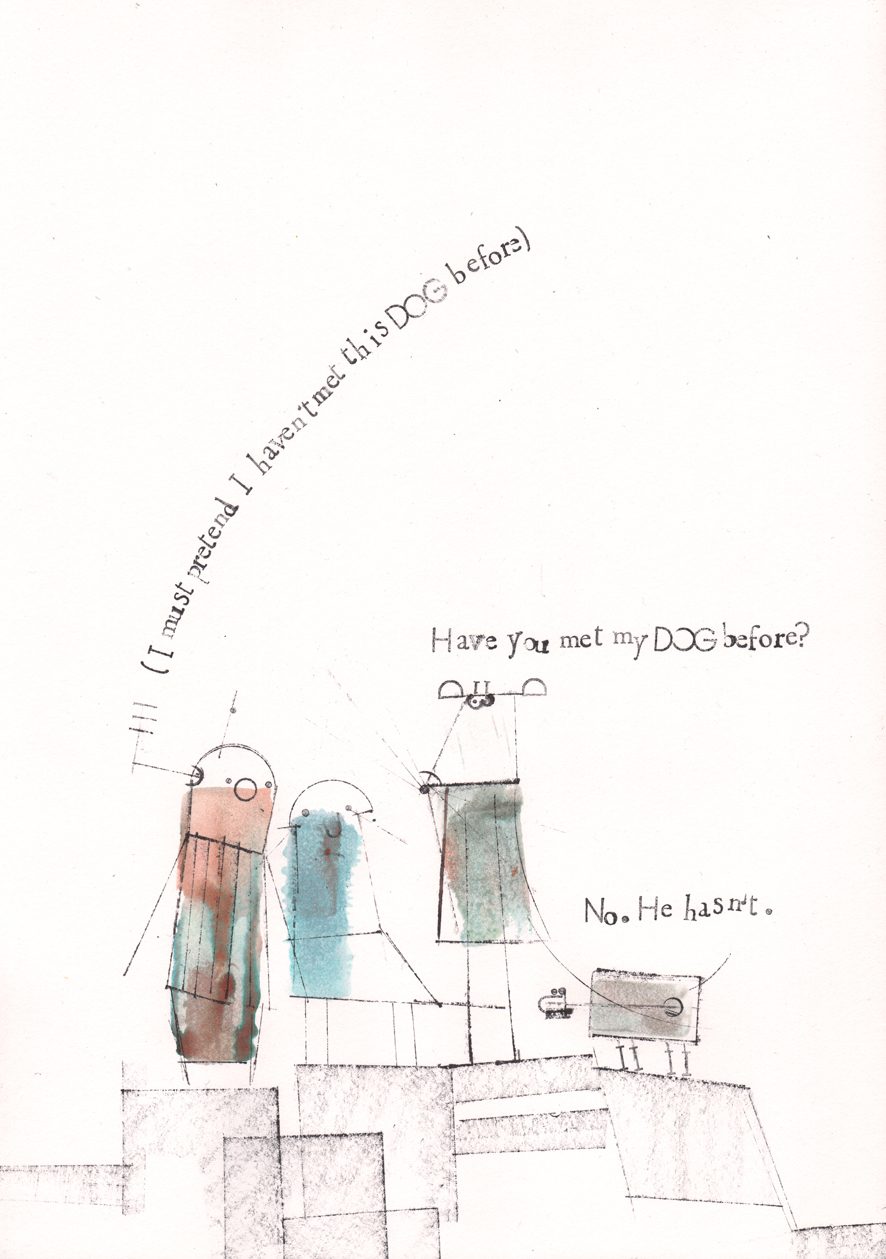 (I must pretend I haven't met this DOG before)
Have you met my DOG before?
No. He hasn't.